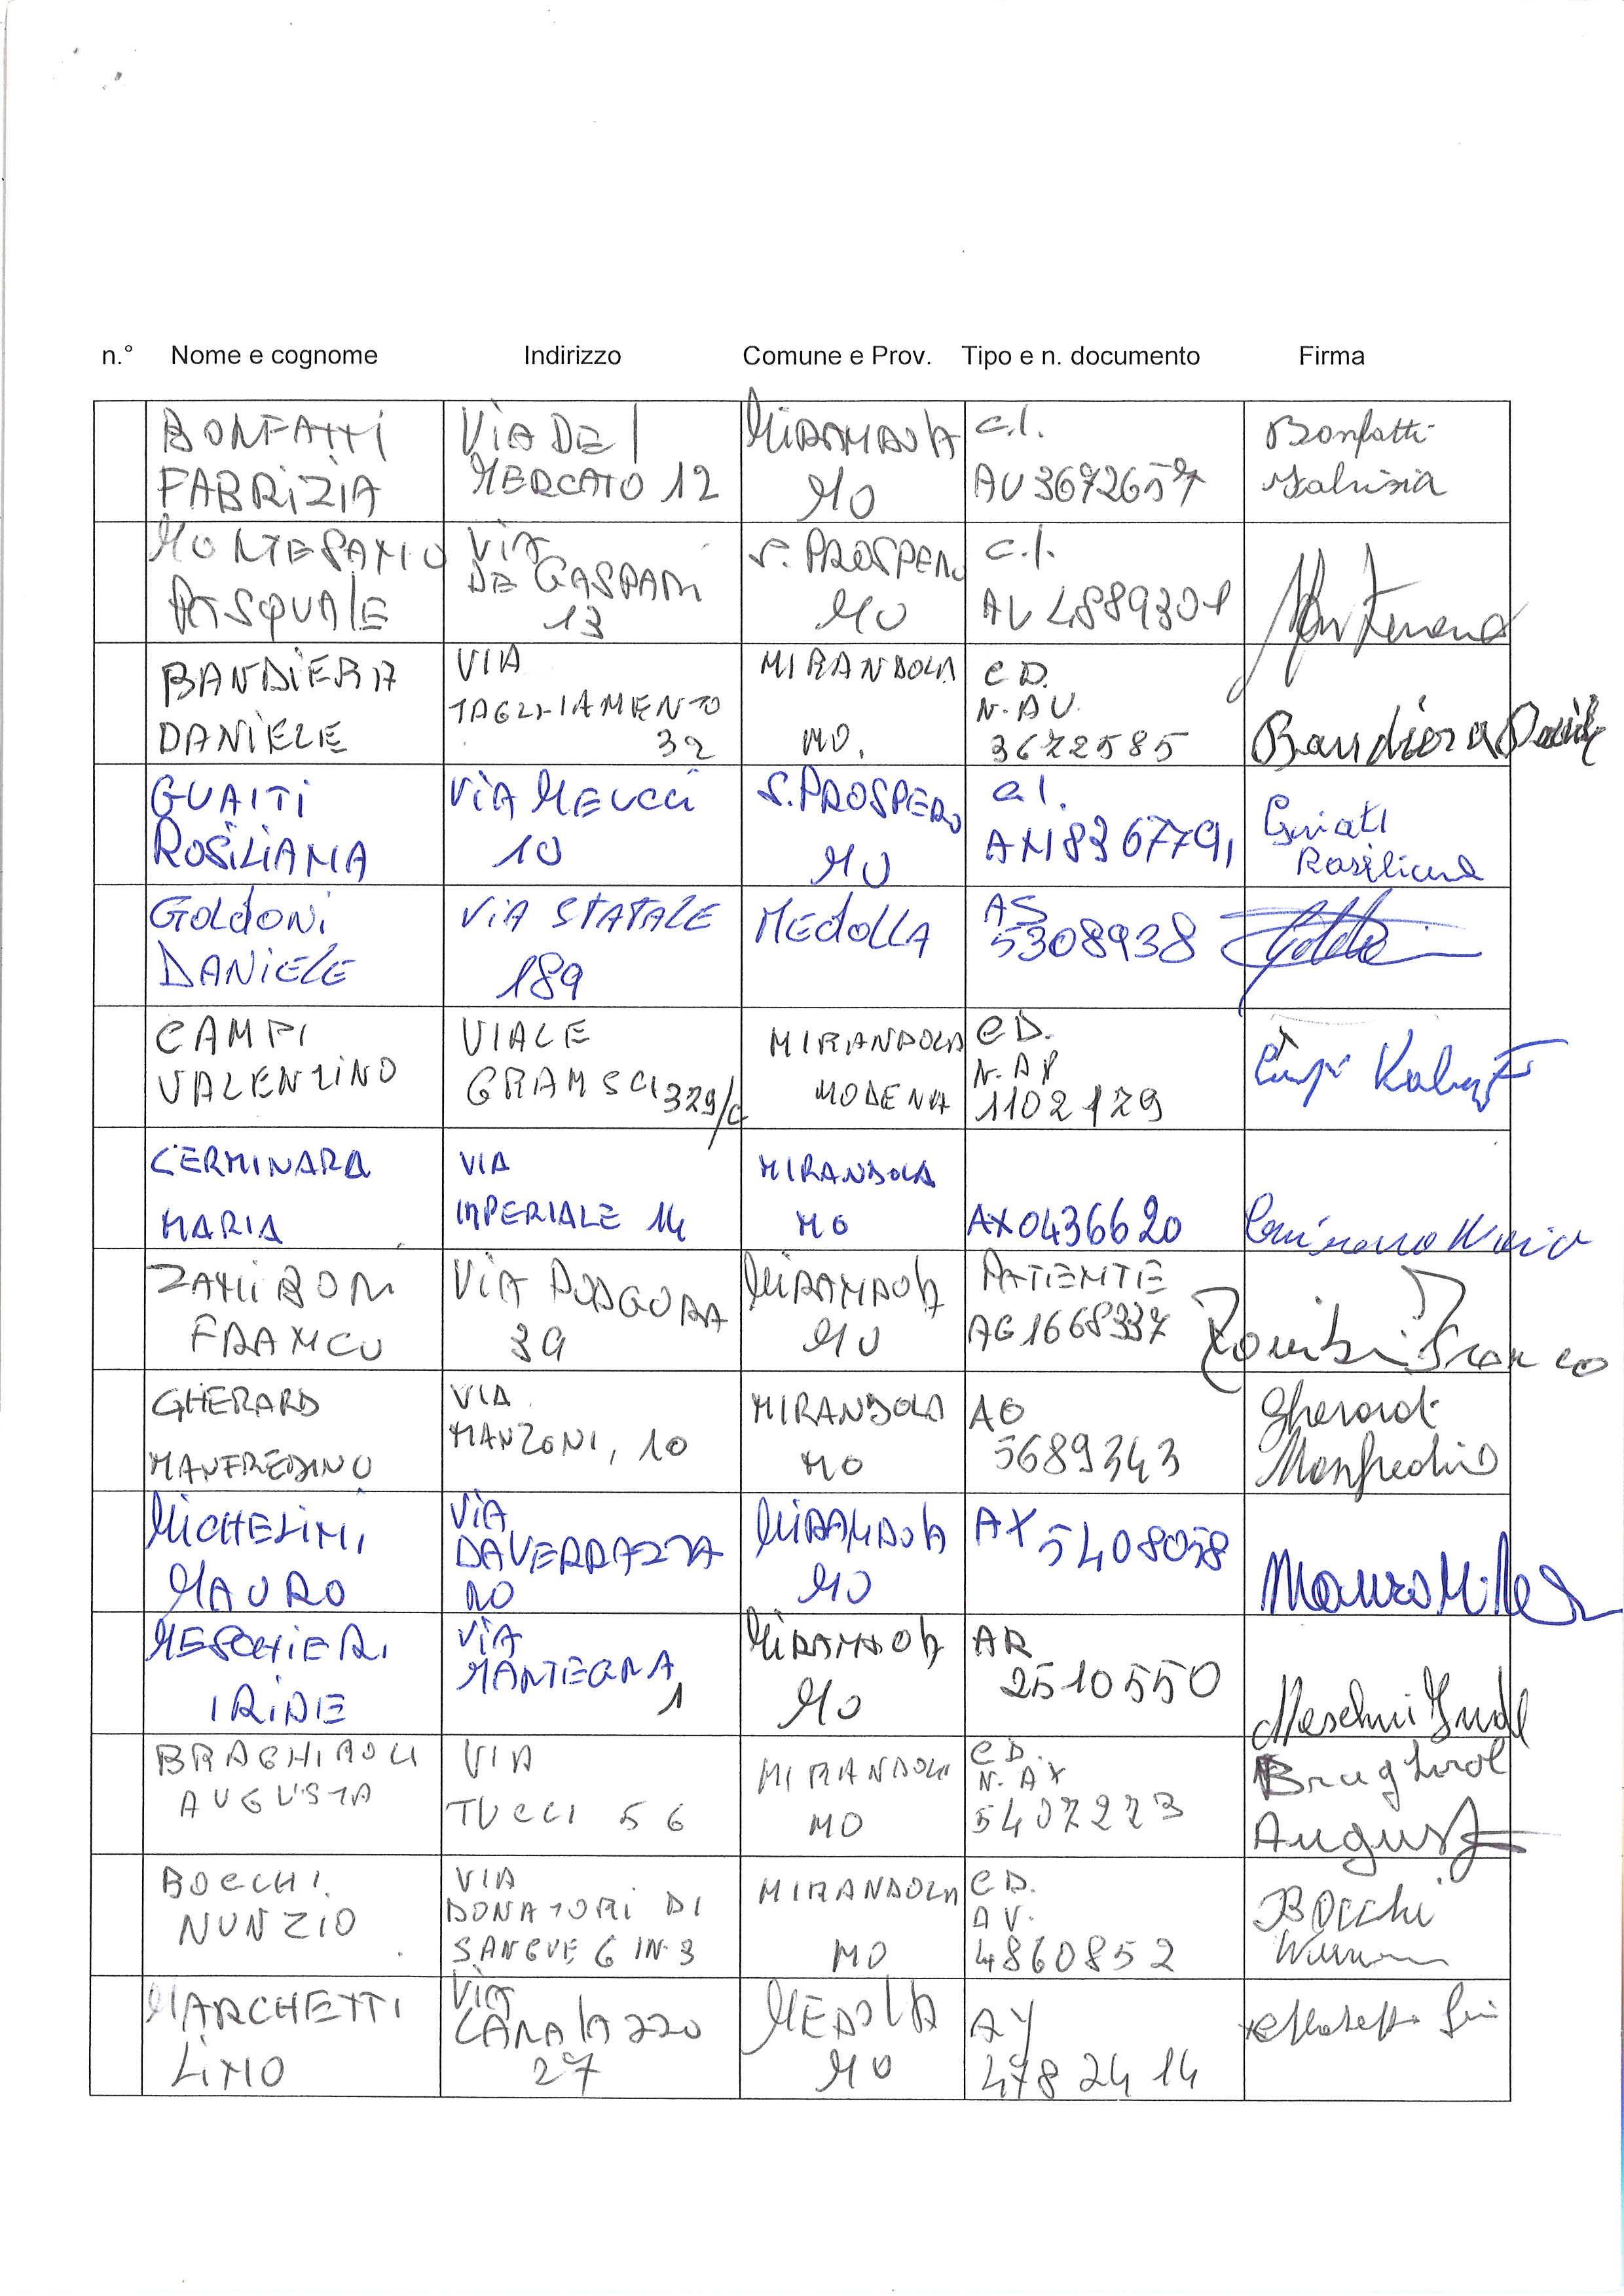 n.° Nome e cognome Indirizzo Comune e Prov. Tipo e n. documento Firma
BONFATTI VIA DEL MIRANDOLA C.I. Bonfatti
FABRIZIA MERCATO 12 MO AV3672657 Fabrizia
MONTESANO VIA S. PROSPERO C.I.
PASQUALE DE GASPARI MO AV4889301
13
BANDIERA VIA MIRANDOLA C D.
DANIELE TAGLIAMENTO MO. N. AV.
32 3672585 Bandiera Daniele
GUAITI VIA MEUCCI S. PROSPERO C.I. Guaiti
ROSILIANA 10 MO AM8367791 Rosiliana
GOLDONI VIA STATALE MEDOLLA AS
DANIELE 189 5308938
CAMPI VIALE MIRANDOLA C D.
VALENZINO GRAMSCI 329/C MODENA N. AX
1102129
CERMINARA VIA MIRANDOLA
MARIA IMPERIALE 14 MO AX0436620 Cerminara Maria
ZANIBONI VIA PODGORA MIRANDOLA PATENTE
FRANCO 39 MO AG1668337 Zaniboni Franco
GHERARD VIA MIRANDOLA AO Gherardi
MANFREDINO MANZONI, 10 MO 5689343 Manfredino
MICHELINI VIA MIRANDOLA AX
MAURO DA VERRAZZA MO 5408058 Mauro
NO
MESCHIERI VIA MIRANDOLA AR
IRIDE MANTEGNA 1 MO 2510550
BRAGHIROLI VIA MIRANDOLA C D.
AUGUSTA TUCCI 56 MO N. AX
5407223 Augusta
BOCCHI VIA MIRANDOLA C D. Bocchi
NUNZIO DONATORI DI MO AV.
SANGUE 6 IN.3 4860852
MARCHETTI VIA MEDOLLA AY
LINO CANALAZZO MO 4782414
27